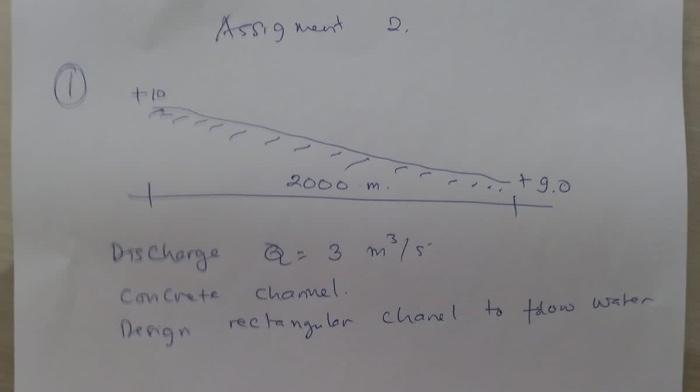 Assigment 2.
1
+10
2000 m.
+9.0
Discharge Q = 3 m³/s
Concrete channel.
Design rectangular chanel to flow water